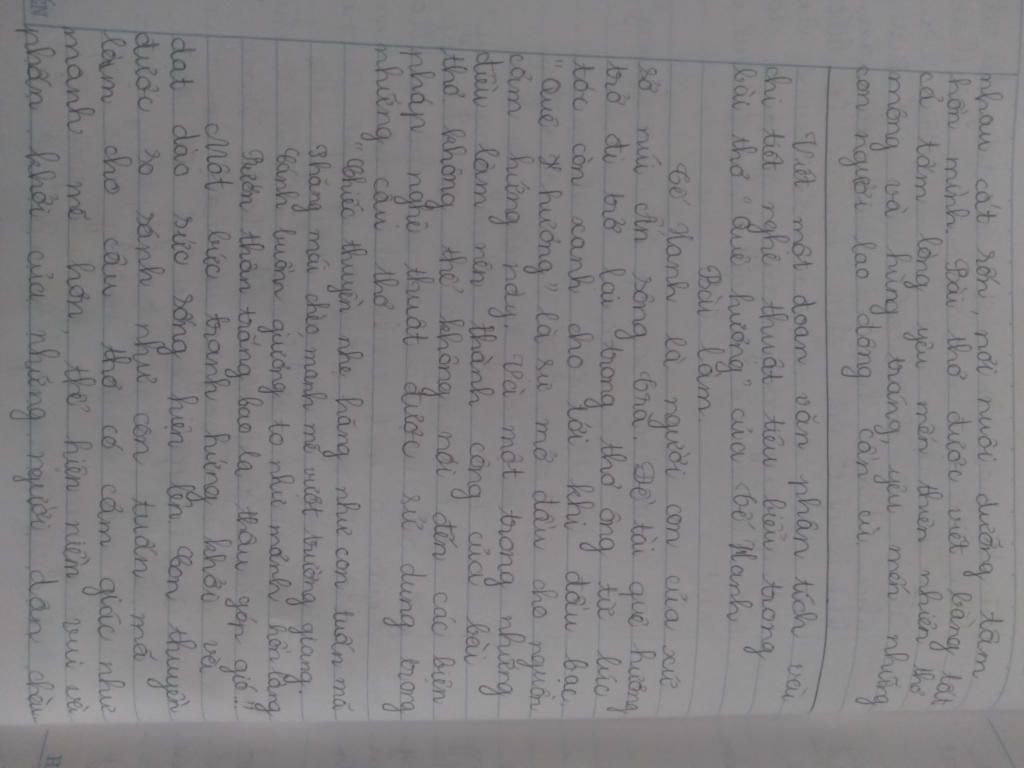 nhau cát sớn, nới nuôi dưỡng tâm
hồn mình. Bài thơ được viết bằng tất
cả tấm lòng yêu mến thiên nhiên thơ
mộng và hùng tráng, yêu mến những
con người lao động cần cù.
Viết một đoạn văn phân tích vài
chi tiết nghệ thuật tiêu biểu trong
bài thơ "Quê hương" của Tế Hanh
Bài làm
Tế Hanh là người con của xứ
sở núi Ấn sông Trà. Đề tài quê hương
trở đi trở lại trong thơ ông từ lúc
tóc còn xanh cho tới khi đầu bạc.
"Quê hương" là sự mở đầu cho nguồn
cảm hứng này. Và một trong những
điều làm nên thành công của bài
thơ không thể không nói đến các biện
pháp nghệ thuật được sử dụng trong
những câu thơ
"Chiếc thuyền nhẹ hăng như con tuấn mã
Phăng mái chèo mạnh mẽ vượt trường giang.
Cánh buồm giương to như mảnh hồn làng
Rướn thân trắng bao la thâu góp gió..."
Một bức tranh hứng khởi và
dạt dào sức sống hiện lên. Con thuyền
được so sánh như con tuấn mã
làm cho câu thơ có cảm giác như
mạnh mẽ hơn, thể hiện niềm vui và
phấn khởi của những người dân chài